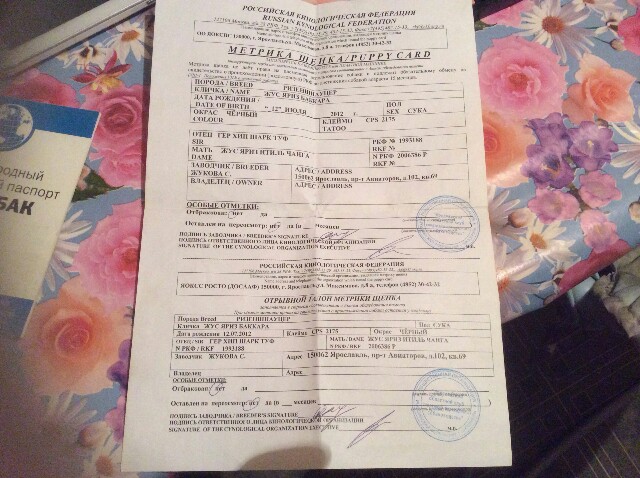 РОССИЙСКАЯ КИНОЛОГИЧЕСКАЯ ФЕДЕРАЦИЯ
RUSSIAN KYNOLOGICAL FEDERATION
МЕТРИКА ЩЕНКА/PUPPY CARD
ПОРОДА / BREED РИЗЕНШНАУЦЕР
КЛИЧКА / NAME ЖУС ЯРИЗ БАККАРА
ДАТА РОЖДЕНИЯ / ПОЛ
DATE OF BIRTH " 12" ИЮЛЯ 2012 г SEX СУКА
ОКРАС ЧЁРНЫЙ КЛЕЙМО CPS 3175
COLOUR TATOO
ОТЕЦ ГЕР ХИП ШАРК ТУФ РКФ № 1993188
SIR RKF №
МАТЬ ЖУС ЯРИЗ ИТИЛЬ ЧАНГА N РКФ 2006386 Р
DAME RKF №
ЗАВОДЧИК / BREEDER АДРЕС / ADDRESS
ЖУКОВА С. 150062 Ярославль, пр-т Авиаторов, д.102, кв.69
ВЛАДЕЛЕЦ / OWNER АДРЕС / ADDRESS
ОСОБЫЕ ОТМЕТКИ:
Отбракован: нет да
Оставлен на пересмотр: нет да 10 месяцев
ПОДПИСЬ ЗАВОДЧИКА / BREEDER'S SIGNATURE
ПОДПИСЬ ОТВЕТСТВЕННОГО ЛИЦА КИНОЛОГИЧЕСКОЙ ОРГАНИЗАЦИИ
SIGNATURE OF THE CYNOLOGICAL ORGANIZATION EXECUTIVE
РОССИЙСКАЯ КИНОЛОГИЧЕСКАЯ ФЕДЕРАЦИЯ
ОТРЫВНОЙ ТАЛОН МЕТРИКИ ЩЕНКА
Порода Breed РИЗЕНШНАУЦЕР
Кличка ЖУС ЯРИЗ БАККАРА Пол СУКА
Дата рождения 12.07.2012 Клеймо CPS 3175 Окрас ЧЁРНЫЙ
ОТЕЦ/SIR ГЕР ХИП ШАРК ТУФ МАТЬ/ DAME ЖУС ЯРИЗ ИТИЛЬ ЧАНГА
N РКФ / RKF 1993188 N РКФ/RKF 2006386 Р
Заводчик ЖУКОВА С. Адрес 150062 Ярославль, пр-т Авиаторов, д.102, кв.69
Владелец Адрес
ОСОБЫЕ ОТМЕТКИ:
Отбракован: нет да
Оставлен на пересмотр: нет да 10 месяцев
ПОДПИСЬ ЗАВОДЧИКА / BREEDER'S SIGNATURE
ПОДПИСЬ ОТВЕТСТВЕННОГО ЛИЦА КИНОЛОГИЧЕСКОЙ ОРГАНИЗАЦИИ
SIGNATURE OF THE CYNOLOGICAL ORGANIZATION EXECUTIVE м.п.
родный
й паспорт
БАК